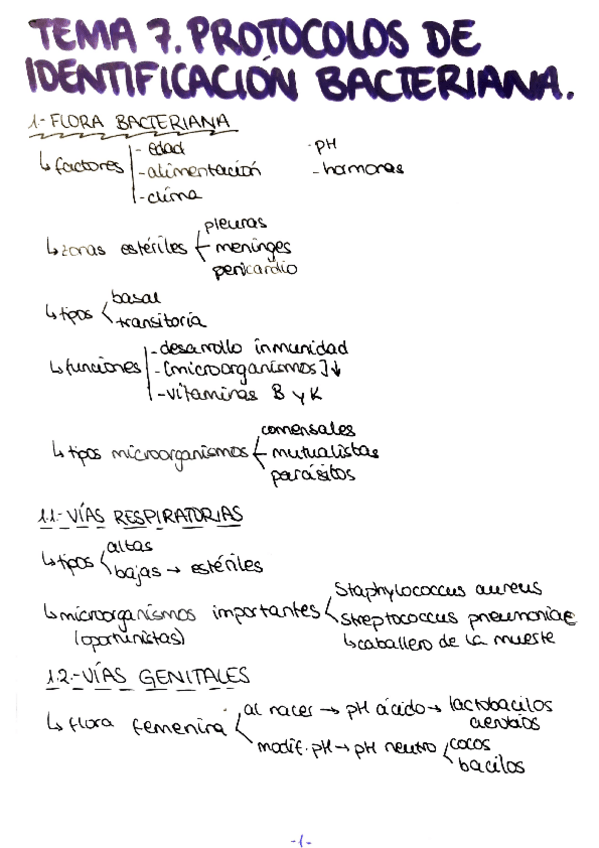 TEMA 7. PROTOCOLOS DE
IDENTIFICACIÓN BACTERIANA.
1.- FLORA BACTERIANA
↳ factores - edad - pH
- alimentación - hormonas
- clima
↳ zonas estériles pleuras
meninges
pericardio
↳ tipos basal
transitoria
↳ funciones - desarrollo inmunidad
- [microorganismos] ↓
- vitaminas B y K
↳ tipos microorganismos comensales
mutualistas
parásitos
1.1.- VÍAS RESPIRATORIAS
↳ tipos altas
bajas → estériles
↳ microorganismos importantes Staphylococcus aureus
(oportunistas) Streptococcus pneumoniae
↳ caballero de la muerte
1.2.- VÍAS GENITALES
↳ flora femenina al nacer → pH ácido → lactobacilos
aerobios
modif. pH → pH neutro cocos
bacilos
-1-